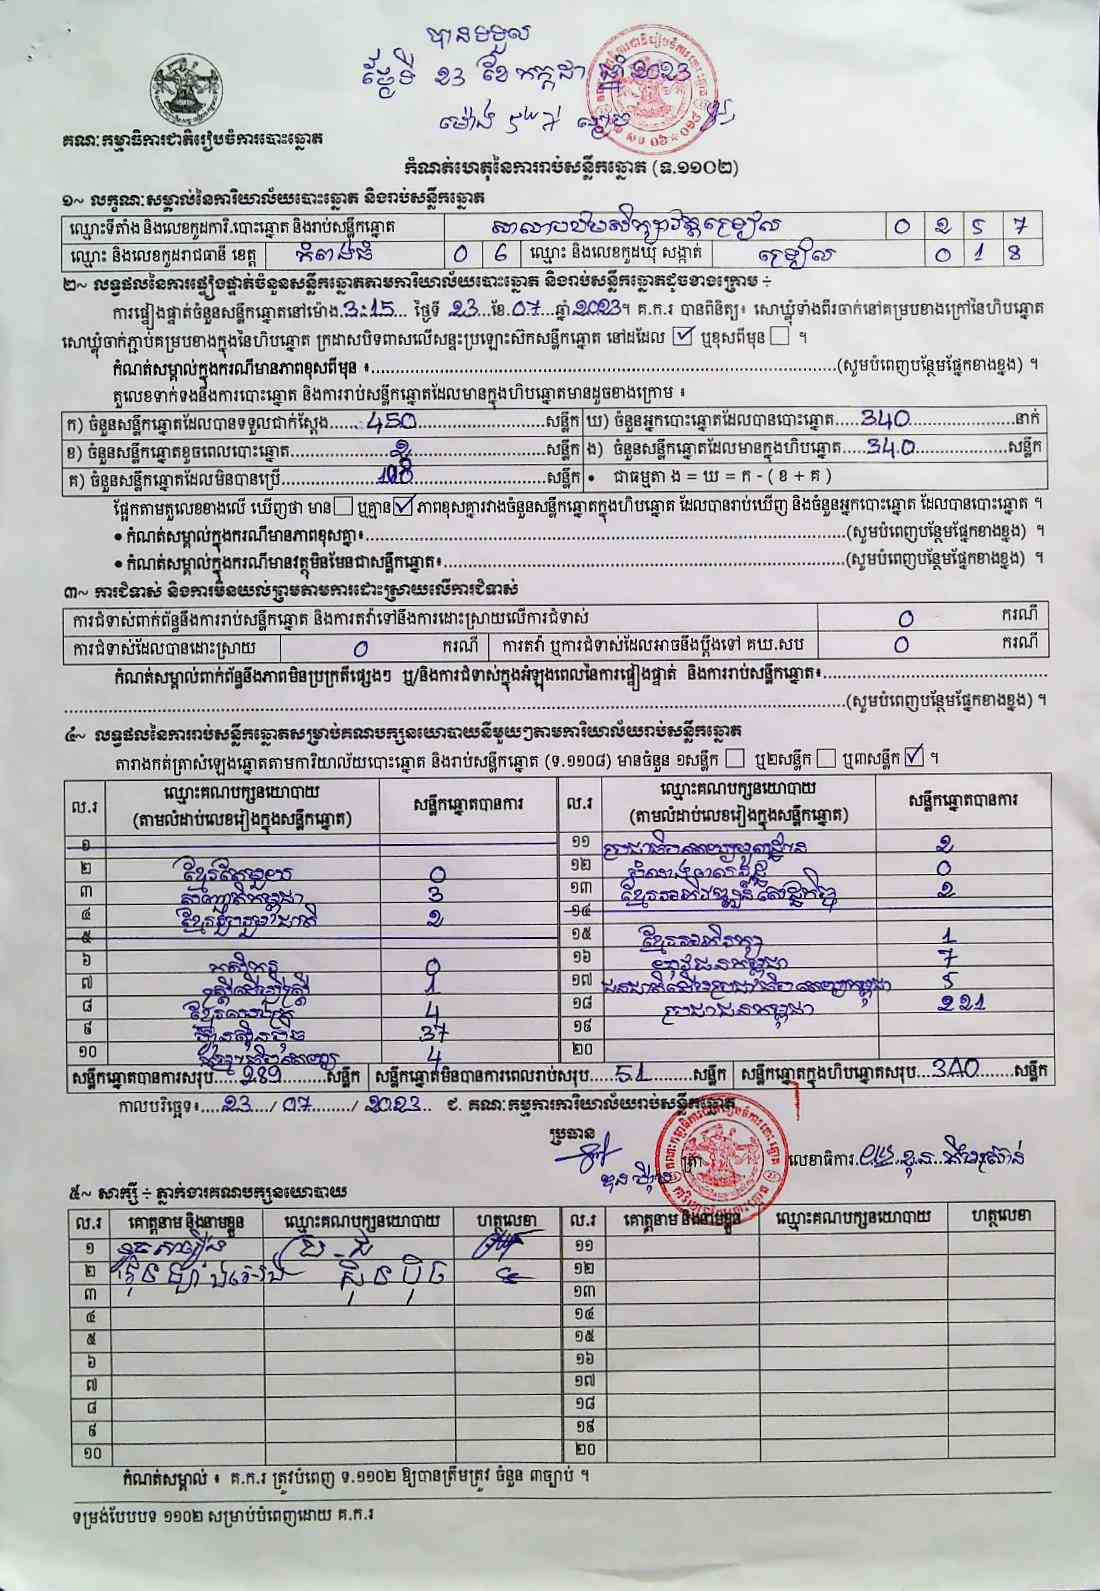 បានទទួល
ថ្ងៃទី 23 ខែ កក្កដា ឆ្នាំ 2023
ម៉ោង 5 47 ល្ងាច
គណៈកម្មាធិការជាតិរៀបចំការបោះឆ្នោត
កំណត់ហេតុនៃការរាប់សន្លឹកឆ្នោត (ទ.១១០២)
១~ លក្ខណៈសម្គាល់នៃការិយាល័យបោះឆ្នោត និងរាប់សន្លឹកឆ្នោត
ឈ្មោះទីតាំង និងលេខកូដការិ.បោះឆ្នោត និងរាប់សន្លឹកឆ្នោត សាលាបឋមសិក្សាវត្តទ្រៀល 0 2 5 7
ឈ្មោះ និងលេខកូដរាជធានី ខេត្ត កំពង់ធំ 0 6 ឈ្មោះ និងលេខកូដឃុំ សង្កាត់ ទ្រៀល 0 1 8
២~ លទ្ធផលនៃការផ្ទៀងផ្ទាត់ចំនួនសន្លឹកឆ្នោតតាមការិយាល័យបោះឆ្នោត និងរាប់សន្លឹកឆ្នោតដូចខាងក្រោម ÷
ការផ្ទៀងផ្ទាត់ចំនួនសន្លឹកឆ្នោតនៅម៉ោង.3:15... ថ្ងៃទី ..23...ខែ.07....ឆ្នាំ2023។ គ.ក.រ បានពិនិត្យ៖ សោឃ្លុំទាំងពីរចាក់នៅគម្របខាងក្រៅនៃហិបឆ្នោត
សោឃ្លុំចាក់ភ្ជាប់គម្របខាងក្នុងនៃហិបឆ្នោត ក្រដាសបិទពាសលើសន្ទះប្រឡោះស៊កសន្លឹកឆ្នោត នៅដដែល ☑ ឬខុសពីមុន ☐ ។
កំណត់សម្គាល់ក្នុងករណីមានភាពខុសពីមុន ៖........(សូមបំពេញបន្ថែមផ្នែកខាងខ្នង) ។
តួលេខទាក់ទងនឹងការបោះឆ្នោត និងការរាប់សន្លឹកឆ្នោតដែលមានក្នុងហិបឆ្នោតមានដូចខាងក្រោម ៖
ក) ចំនួនសន្លឹកឆ្នោតដែលបានទទួលជាក់ស្តែង......450......សន្លឹក ឃ) ចំនួនអ្នកបោះឆ្នោតដែលបានបោះឆ្នោត.....340......នាក់
ខ) ចំនួនសន្លឹកឆ្នោតខូចពេលបោះឆ្នោត......2......សន្លឹក ង) ចំនួនសន្លឹកឆ្នោតដែលមានក្នុងហិបឆ្នោត.....340......សន្លឹក
គ) ចំនួនសន្លឹកឆ្នោតដែលមិនបានប្រើ......108......សន្លឹក • ជាធម្មតា ង = ឃ = ក - ( ខ + គ )
ផ្អែកតាមតួលេខខាងលើ ឃើញថា មាន ☐ ឬគ្មាន ☑ ភាពខុសគ្នារវាងចំនួនសន្លឹកឆ្នោតក្នុងហិបឆ្នោត ដែលបានរាប់ឃើញ និងចំនួនអ្នកបោះឆ្នោត ដែលបានបោះឆ្នោត ។
• កំណត់សម្គាល់ក្នុងករណីមានភាពខុសគ្នា៖........(សូមបំពេញបន្ថែមផ្នែកខាងខ្នង) ។
• កំណត់សម្គាល់ក្នុងករណីមានវត្ថុមិនមែនជាសន្លឹកឆ្នោត៖........(សូមបំពេញបន្ថែមផ្នែកខាងខ្នង) ។
៣~ ការជំទាស់ និងការមិនយល់ព្រមតាមការដោះស្រាយលើការជំទាស់
ការជំទាស់ពាក់ព័ន្ធនឹងការរាប់សន្លឹកឆ្នោត និងការតវ៉ាទៅនឹងការដោះស្រាយលើការជំទាស់ 0 ករណី
ការជំទាស់ដែលបានដោះស្រាយ 0 ករណី ការតវ៉ា ឬការជំទាស់ដែលអាចនឹងប្តឹងទៅ គឃ.សប 0 ករណី
កំណត់សម្គាល់ពាក់ព័ន្ធនឹងភាពមិនប្រក្រតីផ្សេងៗ ឬ/និងការជំទាស់ក្នុងអំឡុងពេលនៃការផ្ទៀងផ្ទាត់ និងការរាប់សន្លឹកឆ្នោត៖........
........(សូមបំពេញបន្ថែមផ្នែកខាងខ្នង) ។
៤~ លទ្ធផលនៃការរាប់សន្លឹកឆ្នោតសម្រាប់គណបក្សនយោបាយនីមួយៗតាមការិយាល័យរាប់សន្លឹកឆ្នោត
តារាងកត់ត្រាសំឡេងឆ្នោតតាមការិយាល័យបោះឆ្នោត និងរាប់សន្លឹកឆ្នោត (ទ.១១០៨) មានចំនួន ១សន្លឹក ☐ ឬ២សន្លឹក ☐ ឬ៣សន្លឹក ☑ ។
ល.រ ឈ្មោះគណបក្សនយោបាយ (តាមលំដាប់លេខរៀងក្នុងសន្លឹកឆ្នោត) សន្លឹកឆ្នោតបានការ ល.រ ឈ្មោះគណបក្សនយោបាយ (តាមលំដាប់លេខរៀងក្នុងសន្លឹកឆ្នោត) សន្លឹកឆ្នោតបានការ
១ ១១ ប្រជាធិបតេយ្យមូលដ្ឋាន 2
២ ខ្មែរតែមួយ 0 ១២ 0
៣ សញ្ជាតិកម្ពុជា 3 ១៣ ខ្មែរអភិវឌ្ឍន៍សេដ្ឋកិច្ច 2
៤ ខ្មែររួបរួមជាតិ 2 ១៤
៥ ១៥ ខ្មែរអភិរក្ស 1
៦ កសិករ 0 ១៦ យុវជនកម្ពុជា 7
៧ ស្ត្រីដើម្បីស្ត្រី 1 ១៧ ជនជាតិដើមប្រជាធិបតេយ្យកម្ពុជា 5
៨ ខ្មែរ 4 ១៨ ប្រជាជនកម្ពុជា 221
៩ ហ៊្វុនស៊ិនប៉ិច 37 ១៩
១០ 4 ២០
សន្លឹកឆ្នោតបានការសរុប.....289......សន្លឹក សន្លឹកឆ្នោតមិនបានការពេលរាប់សរុប.....51......សន្លឹក សន្លឹកឆ្នោតក្នុងហិបឆ្នោតសរុប...340......សន្លឹក
កាលបរិច្ឆេទ៖....23..../07......../2023.. ជ. គណៈកម្មការការិយាល័យរាប់សន្លឹកឆ្នោត
ប្រធាន
ត្រា លេខាធិការ
៥~ សាក្សី ÷ ភ្នាក់ងារគណបក្សនយោបាយ
ល.រ គោត្តនាម និងនាមខ្លួន ឈ្មោះគណបក្សនយោបាយ ហត្ថលេខា ល.រ គោត្តនាម និងនាមខ្លួន ឈ្មោះគណបក្សនយោបាយ ហត្ថលេខា
១ ប្រ.ជ ១១
២ ស៊ិនប៉ិច ១២
៣ ១៣
៤ ១៤
៥ ១៥
៦ ១៦
៧ ១៧
៨ ១៨
៩ ១៩
១០ ២០
កំណត់សម្គាល់ ៖ គ.ក.រ ត្រូវបំពេញ ទ.១១០២ ឱ្យបានត្រឹមត្រូវ ចំនួន ៣ច្បាប់ ។
ទម្រង់បែបបទ ១១០២ សម្រាប់បំពេញដោយ គ.ក.រ